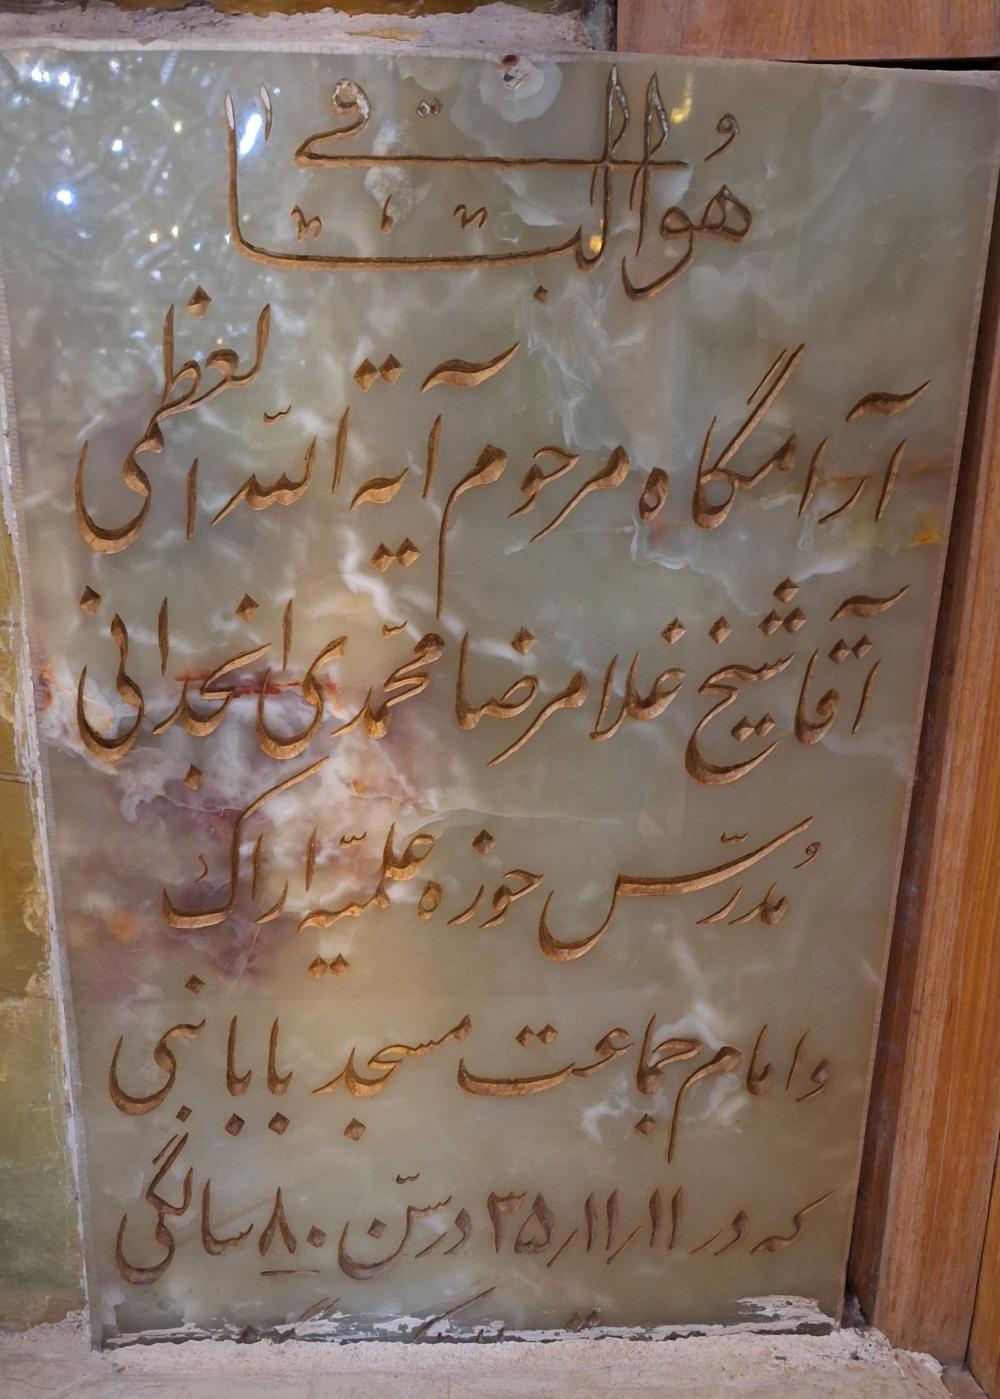 هُوالباقی
آرامگاه مرحوم آیة اللّه العظمی
آقا شیخ غلامرضا محمّدی انجدانی
مُدرّس حوزه علمیّه اراک
و امام جماعت مسجد بابا نبی
که در ۱۱/۱۱/۳۵ در سنّ ۸۰ سالگی